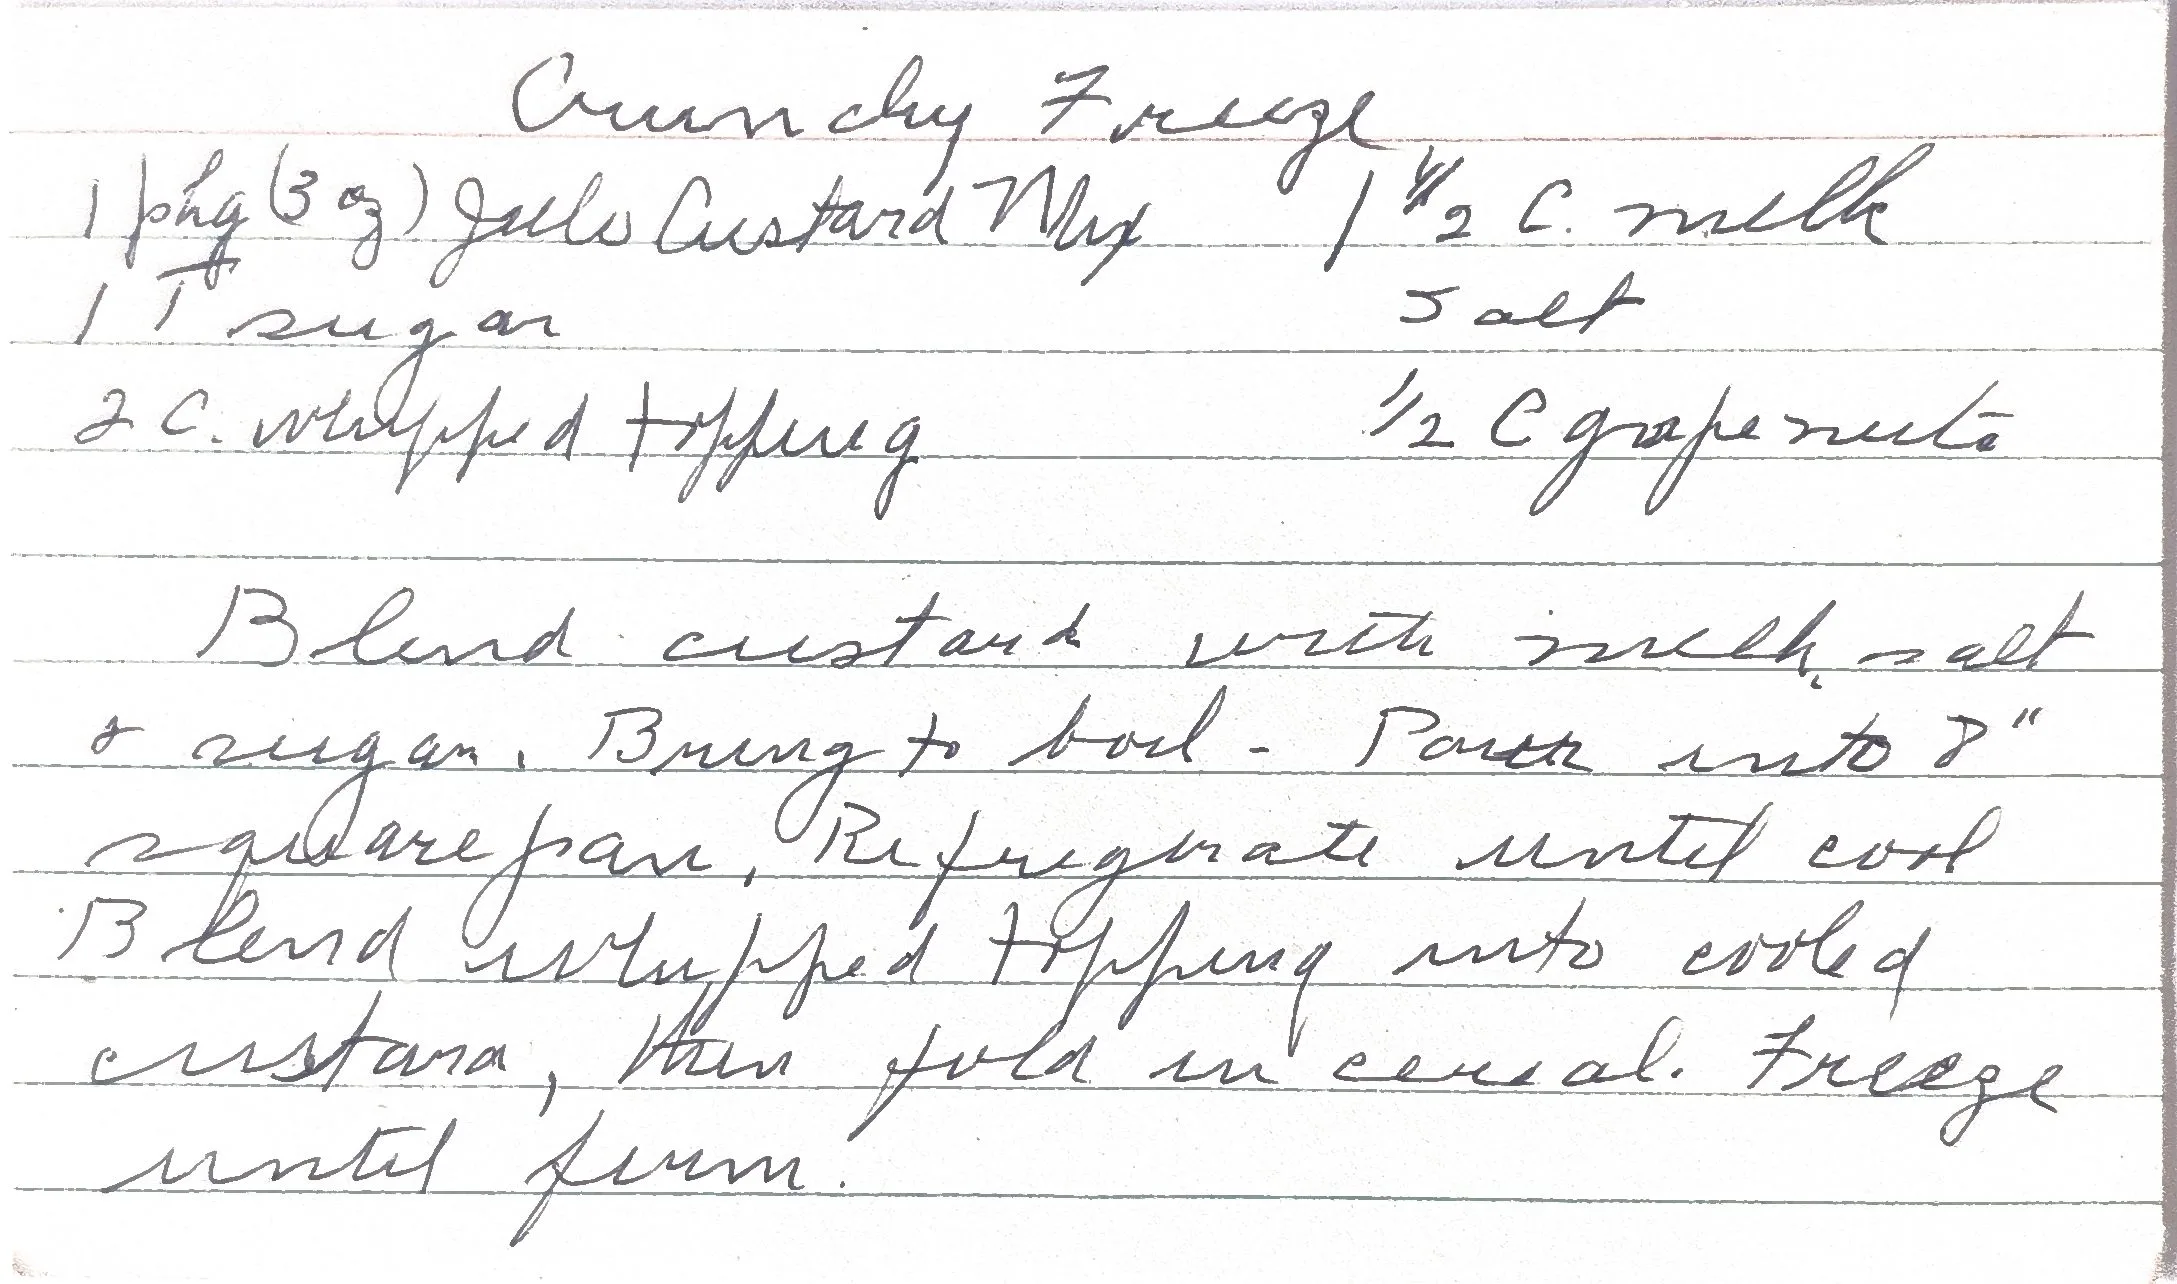 Crunchy Freeze
1 pkg (3 oz) Jello Custard Mix 1 1/2 C. milk
1 T sugar salt
2 C. whipped topping 1/2 C grapenuts
Blend custard with milk, salt
& sugar. Bring to boil - Pour into 8"
square pan. Refrigerate until cool
Blend whipped topping into cooled
custard, then fold in cereal. Freeze
until firm.